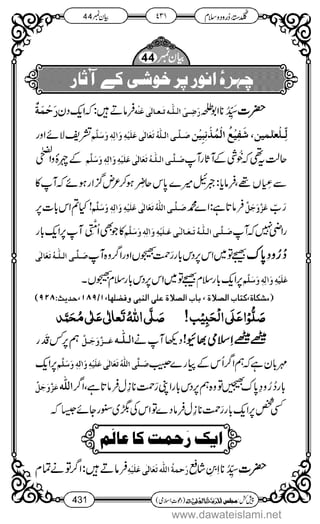 بیان نمبر 44
٤٣١
گلدستۂ درود و سلام
بیان نمبر 44
چہرۂ انور پر خوشی کے آثار
حضرت سَیِّدُنا ابو طلحہ رَضِیَ اللہُ تَعَالٰی عَنْہ فرماتے ہیں: کہ ایک دن رَحْمَۃٌ
لِّلْعٰلَمِین، شَفِیْعُ الْمُذْنِبِیْن صَلَّی اللہُ تَعَالٰی عَلَیْہِ وَاٰلِہٖ وَسَلَّم تشریف لائے اور
حالت یہ تھی کہ خُوشی کے آثار آپ صَلَّی اللہُ تَعَالٰی عَلَیْہِ وَاٰلِہٖ وَسَلَّم کے چہرۂ وَالضُّحٰی
سے عیاں تھے، فرمایا: جبرئیل میرے پاس حاضِر ہو کر عرض گزار ہوئے کہ آپ کا
رَبّ عَزَّوَجَلَّ فرماتا ہے: اے محمد صَلَّی اللہُ تَعَالٰی عَلَیْہِ وَاٰلِہٖ وَسَلَّم! کیا تم اس بات پر
راضی نہیں کہ آپ صَلَّی اللہُ تَعَالٰی عَلَیْہِ وَاٰلِہٖ وَسَلَّم کا جو بھی اُمَّتی آپ پر ایک بار
دُرُودِ پاک بھیجے تو میں اس پر دس بار رحمت بھیجوں اور اگر وہ آپ صَلَّی اللہُ تَعَالٰی
عَلَیْہِ وَاٰلِہٖ وَسَلَّم پر ایک بار سلام بھیجے تو میں اس پر دس بار سلام بھیجوں۔
(مشکاۃ،کتاب الصلاۃ، باب الصلاۃ علی النبی وفضلھا، ۱/۱۸۹،حدیث:۹۲۸)
صَلُّوْا عَلَی الْحَبِیْب! صَلَّی اللہُ تَعَالٰی عَلٰی مُحَمَّد
میٹھے میٹھے اسلامی بھائیو! دیکھا آپ نے اللہ عَزَّوَجَلَّ ہم پر کس قدَر
مہربان ہے کہ ہم اگر اُس کے پیارے حبیب صَلَّی اللہُ تَعَالٰی عَلَیْہِ وَاٰلِہٖ وَسَلَّم پر ایک
بار دُرُودِ پاک بھیجیں تو وہ ہم پر دس بار اپنی رَحمت نازِل فرماتا ہے، اگر اللہ عَزَّوَجَلَّ
کسی شخص پر ایک بار رَحمت نازِل فرمادے تو اس کی بگڑی سنور جائے چہ جائیکہ
ایک رَحمت کا عالَم
حضرت سَیِّدُنا ابنِ شافع رَحْمَۃُ اللہِ تَعَالٰی عَلَیْہ فرماتے ہیں: اگر تو نے تمام
431
www.dawateislami.net